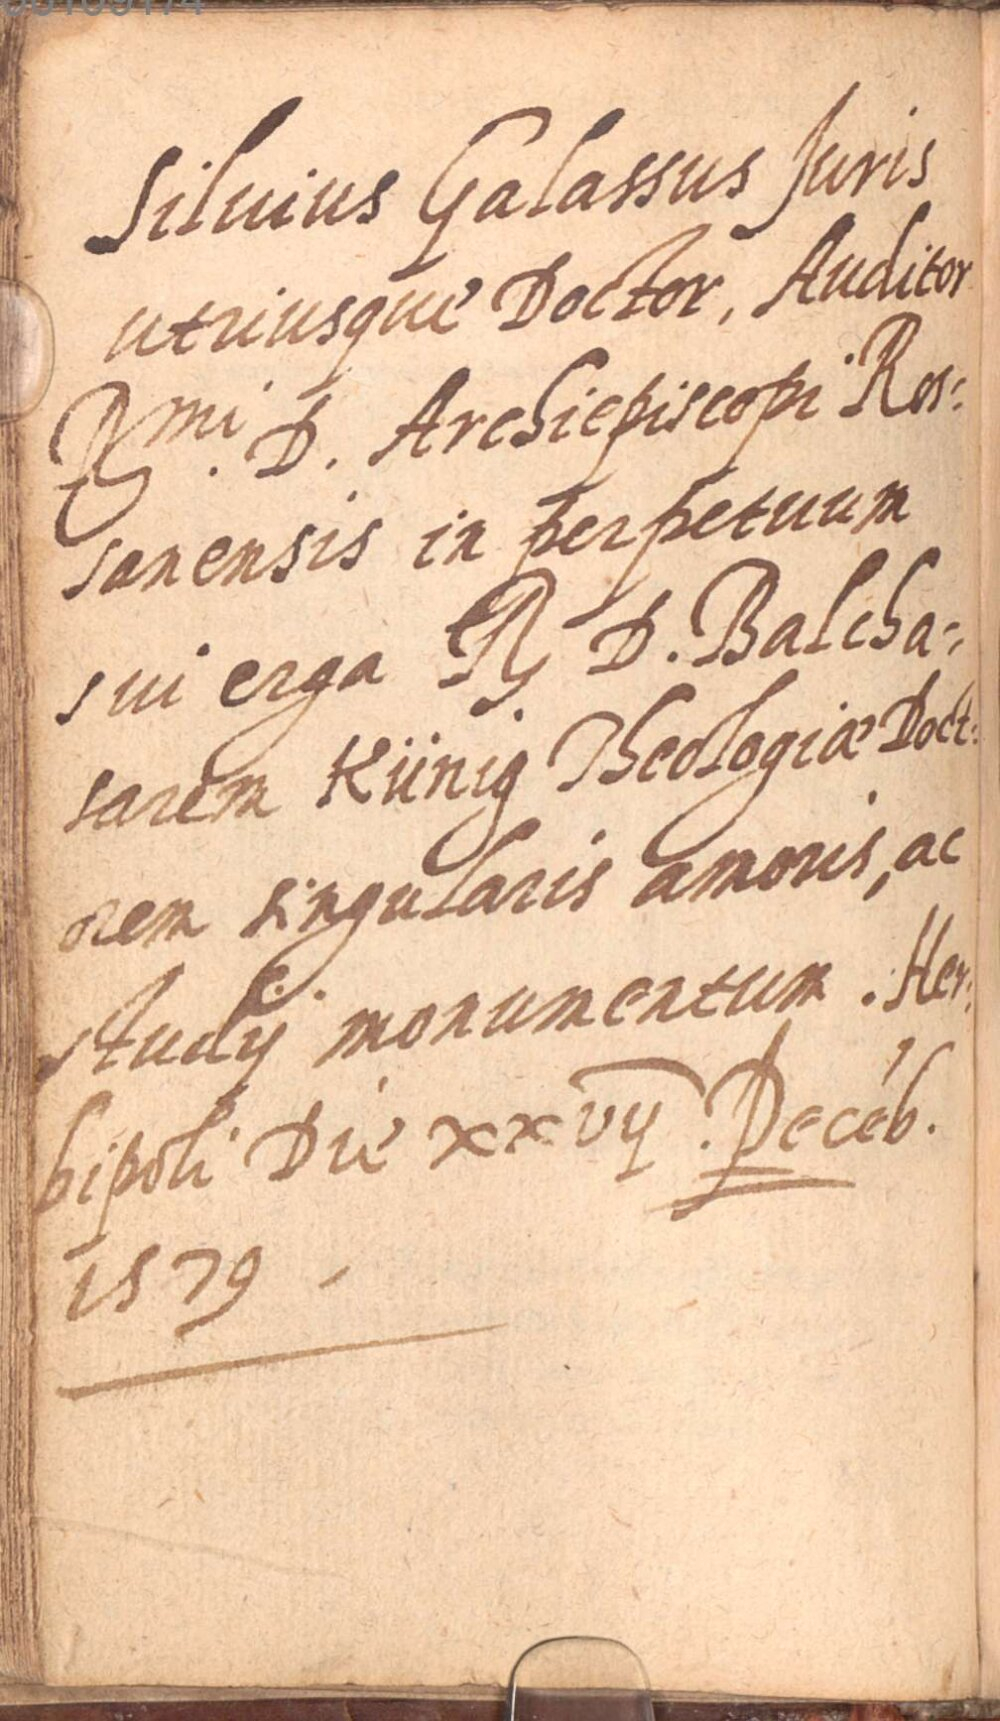 Siluius Galassus Juris
utriusque Doctor, Auditor
Rmi. D. Archiepiscopi Ros:
sanensis in perpetuum
sui erga R D. Balcha:
sarem Künig Theologiæ Doct:
orem singularis amoris, ac
studij monumentum. Her:
bipoli Die xxvij. Decēb.
1579